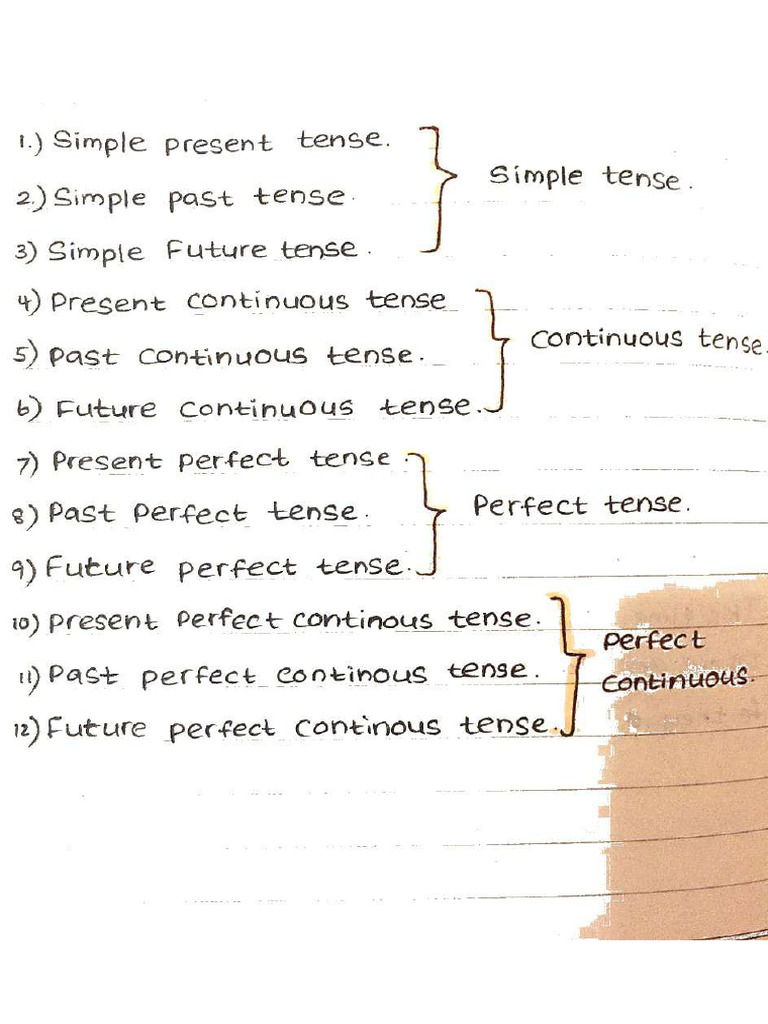 1.) Simple present tense.
Simple tense.
2.) Simple past tense.
3) Simple Future tense.
4) Present continuous tense
continuous tense.
5) Past continuous tense.
6) Future continuous tense.
7) Present perfect tense.
Perfect tense.
8) Past Perfect tense.
9) Future perfect tense.
10) Present Perfect continous tense.
Perfect
continuous.
11) Past perfect continous tense.
12) Future perfect continous tense.